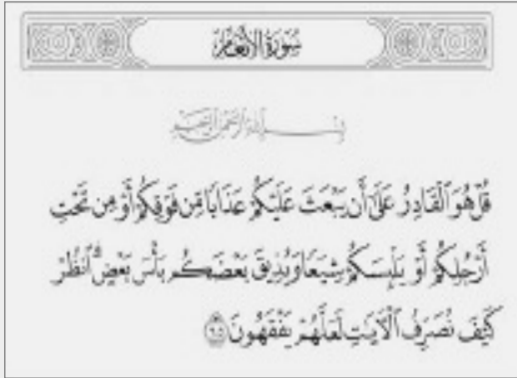 سُورَةُ الأَنْعَامِ
بِسْمِ اللَّهِ الرَّحْمَٰنِ الرَّحِيمِ
قُلْ هُوَ ٱلْقَادِرُ عَلَىٰٓ أَن يَبْعَثَ عَلَيْكُمْ عَذَابًا مِّن فَوْقِكُمْ أَوْ مِن تَحْتِ
أَرْجُلِكُمْ أَوْ يَلْبِسَكُمْ شِيَعًا وَيُذِيقَ بَعْضَكُم بَأْسَ بَعْضٍ ۗ ٱنظُرْ
كَيْفَ نُصَرِّفُ ٱلْـَٔايَـٰتِ لَعَلَّهُمْ يَفْقَهُونَ ٦٥